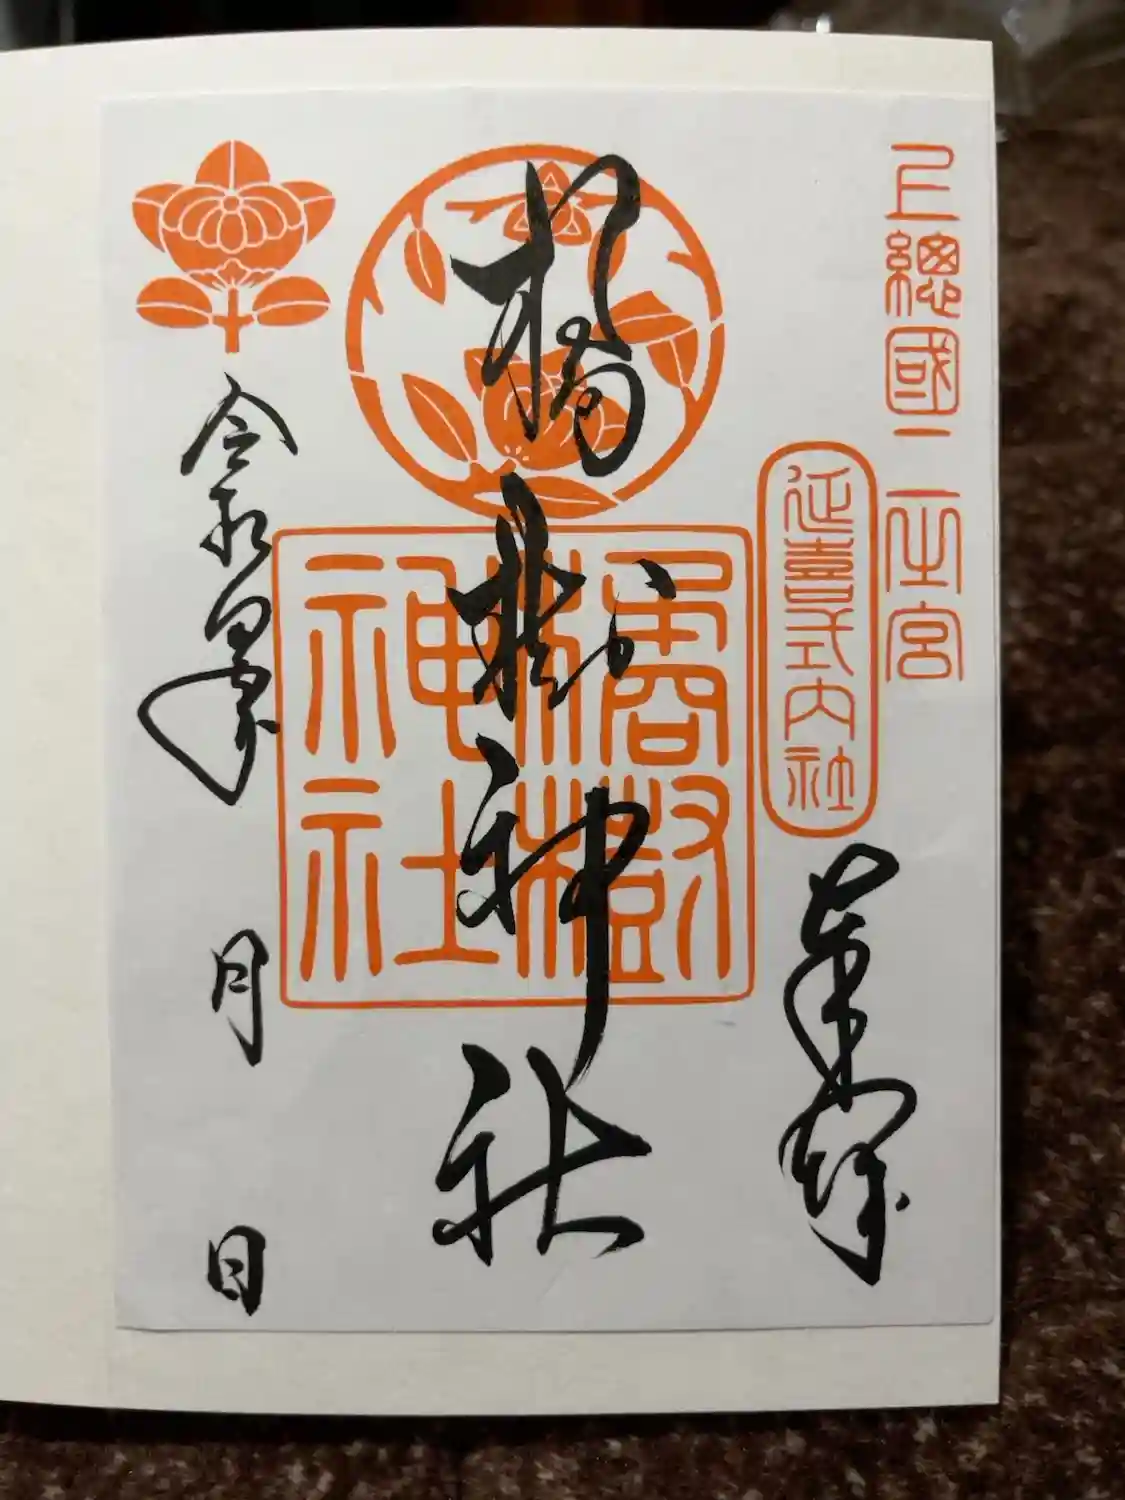 上總國二之宮
延喜式内社
奉拝
橘樹神社
橘樹
神社
令和四年 月 日